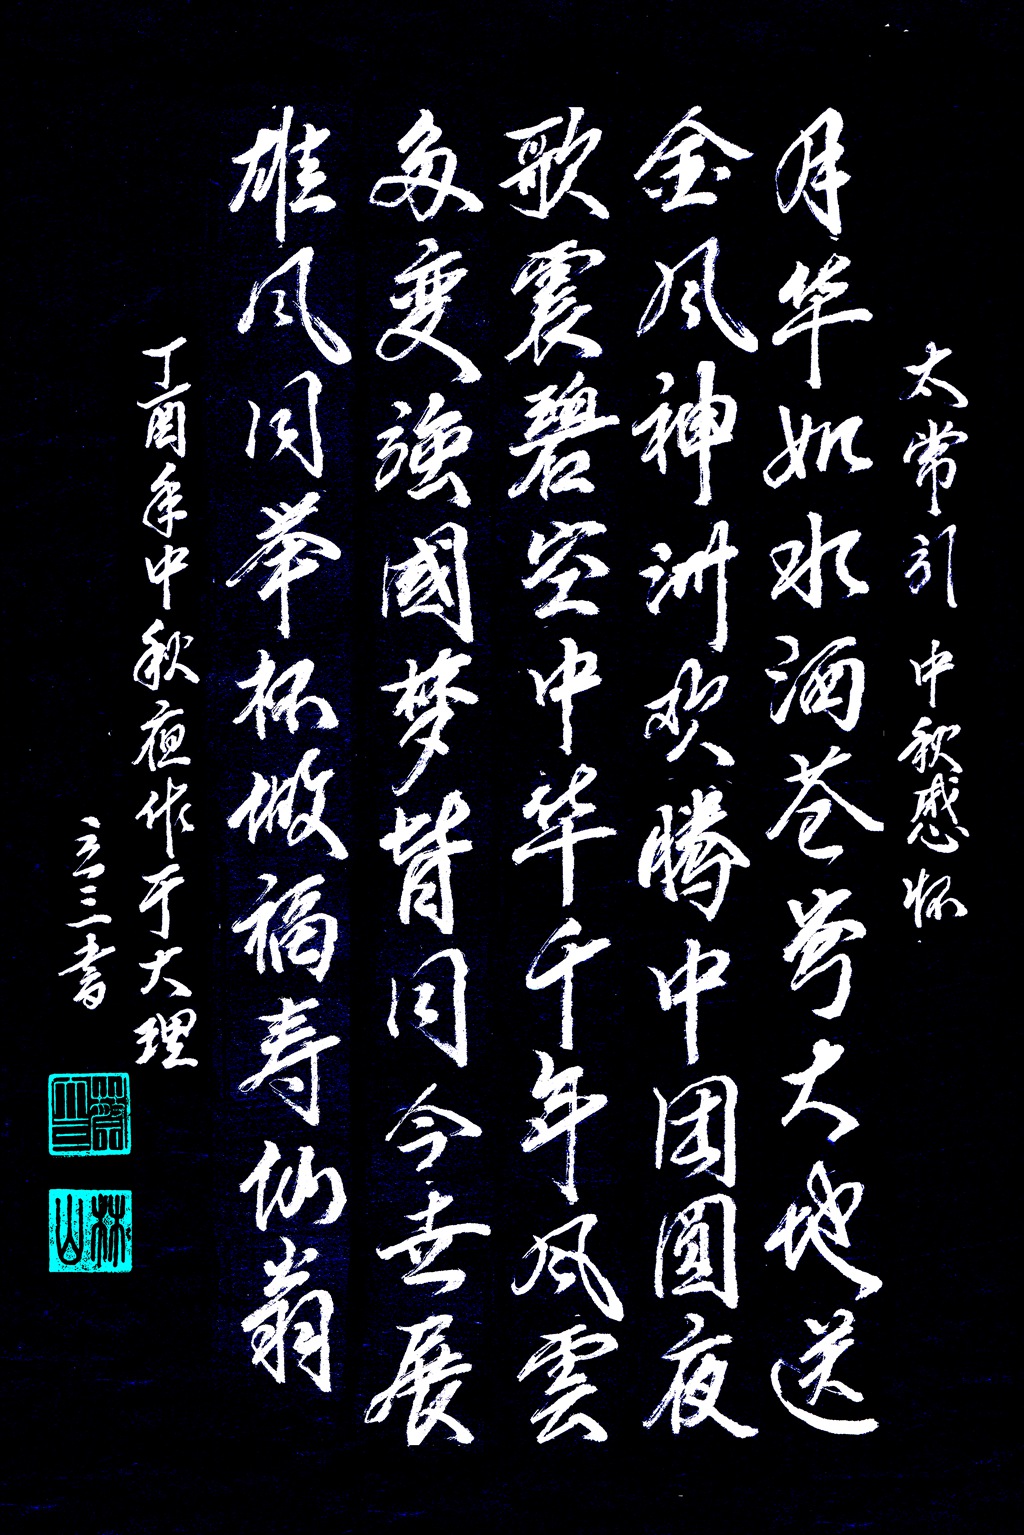 太常引 中秋感怀
月华如水洒苍穹大地送
金风神洲欢腾中团圆夜
歌震碧空中华千年风雲
多变強國梦皆同今世展
雄风同举杯做福寿仙翁
丁酉年中秋夜作于大理
立三书
立三
林山